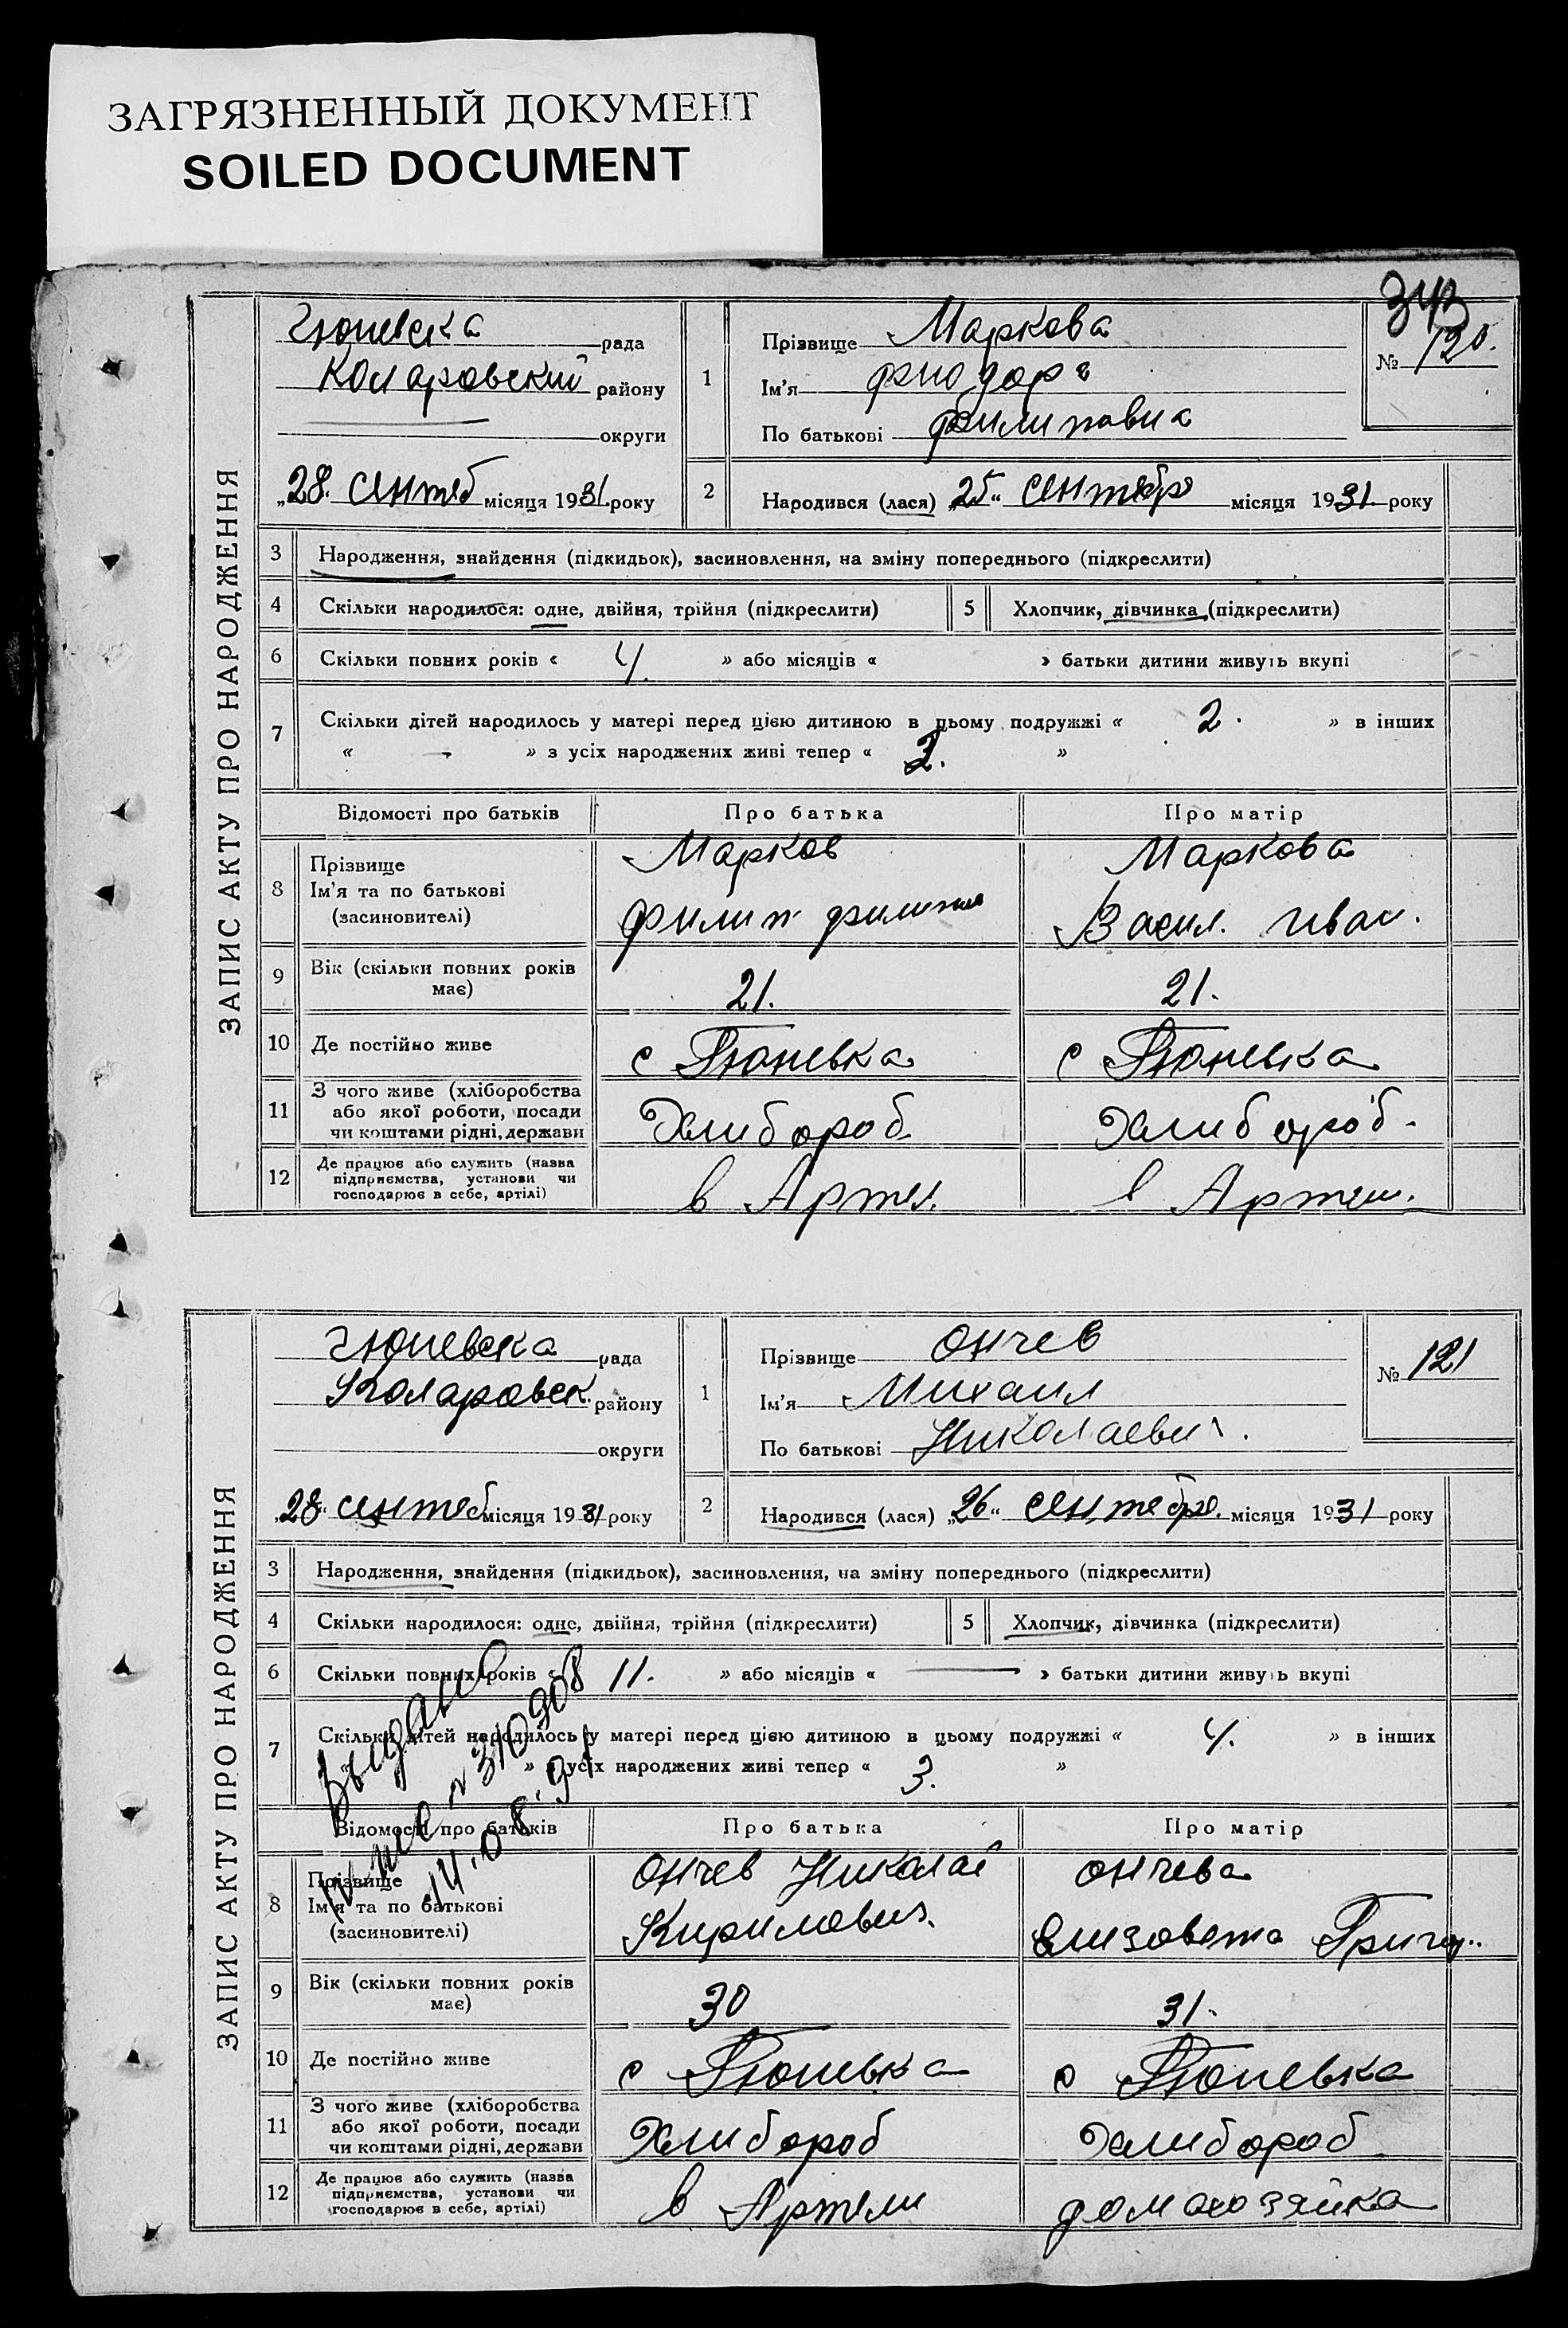 ЗАГРЯЗНЕННЫЙ ДОКУМЕНТ
SOILED DOCUMENT
343
ЗАПИС АКТУ ПРО НАРОДЖЕННЯ
Гюневска рада
Коларовский району
округи
„28. сентеб місяця 1931 року
1
Прізвище Маркова
Ім'я
По батькові Филиповна
№ 120.
2 Народився (лася) „25“ сентября місяця 1931 року
3 Народження, знайдення (підкидьок), засиновлення, на зміну попереднього (підкреслити)
4 Скільки народилося: одне, двійня, трійня (підкреслити) 5 Хлопчик, дівчинка (підкреслити)
6 Скільки повних років « 4. » або місяців « » батьки дитини живуть вкупі
7 Скільки дітей народилось у матері перед цією дитиною в цьому подружжі « 2. » в інших
« - » з усіх народжених живі тепер « 2. »
Відомості про батьків Про батька Про матір
8 Прізвище
Ім'я та по батькові
(засиновителі)
Марков
Филип
Маркова
Васил. Иван.
9 Вік (скільки повних років
має)
21. 21.
10 Де постійно живе с Гюневка с Гюневка
11 З чого живе (хліборобства
або якої роботи, посади
чи коштами рідні, держави
Хлибороб. Хлибороб.
12 Де працює або служить (назва
підприємства, установи чи
господарює в себе, артілі)
в Артел. в Артели.
ЗАПИС АКТУ ПРО НАРОДЖЕННЯ
Гюневска рада
Коларовск. району
округи
„28“ сентеб місяця 1931 року
1
Прізвище Ончев
Ім'я Михаил
По батькові Николаевич.
№ 121
2 Народився (лася) „26“ сентября місяця 1931 року
3 Народження, знайдення (підкидьок), засиновлення, на зміну попереднього (підкреслити)
4 Скільки народилося: одне, двійня, трійня (підкреслити) 5 Хлопчик, дівчинка (підкреслити)
6 Скільки повних років « 11. » або місяців « — » батьки дитини живуть вкупі
7 Скільки дітей народилось у матері перед цією дитиною в цьому подружжі « 4. » в інших
» з усіх народжених живі тепер « 3. »
Выдано
№ 310908
14.08.91
Відомості про батьків Про батька Про матір
8 Прізвище
Ім'я та по батькові
(засиновителі)
Ончев Николай
Кирилович.
Ончева
Елизовета Григор.
9 Вік (скільки повних років
має)
30 31.
10 Де постійно живе с Гюневка с Гюневка
11 З чого живе (хліборобства
або якої роботи, посади
чи коштами рідні, держави
Хлибороб Хлибороб
12 Де працює або служить (назва
підприємства, установи чи
господарює в себе, артілі)
в Артели домохозяйка